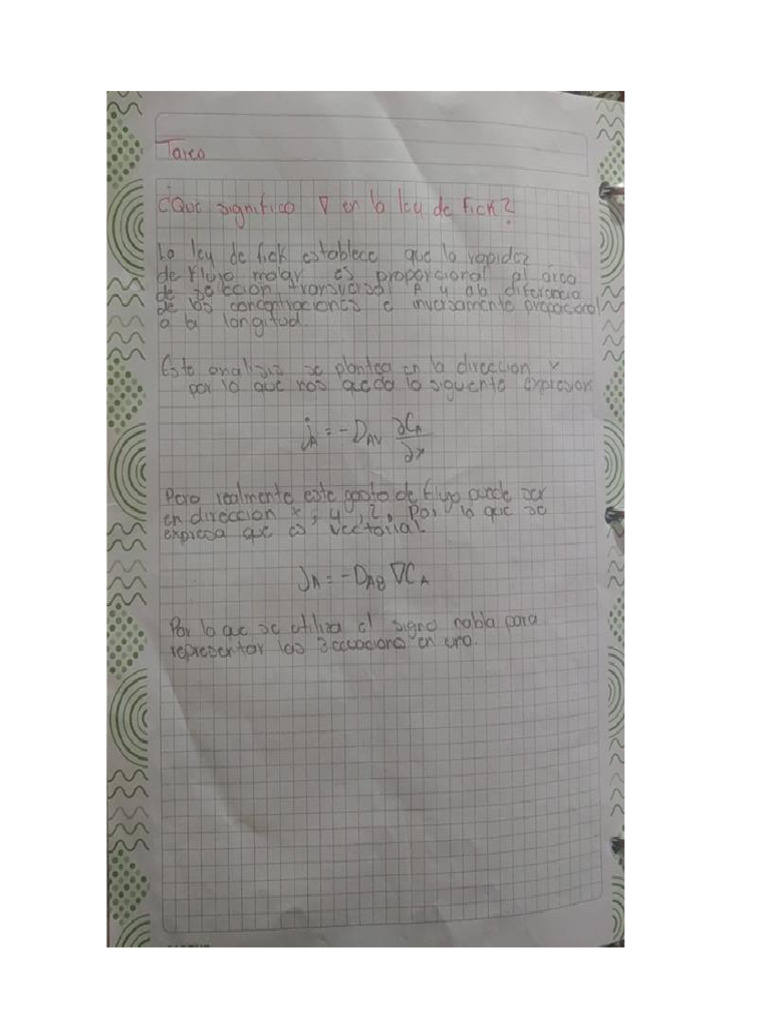 Tarea
¿Que significa ∇ en la ley de Fick?
La ley de fick establece que la rapidez
de flujo molar es proporcional al area
de selección transversal A y a la diferencia
de las concentraciones e inversamente proporcional
a la longitud.
Este analisis se plantea en la direccion x
por lo que nos queda la siguente expresion
j_A = -D_AV ∂C_A/∂x
Pero realmente este gasto de flujo puede ser
en direccion x, y, z. Por lo que se
expresa que es vectorial
J_A = -D_AB ∇C_A
Por lo que se utiliza el signo nabla para
representar las 3 ecuaciones en una.